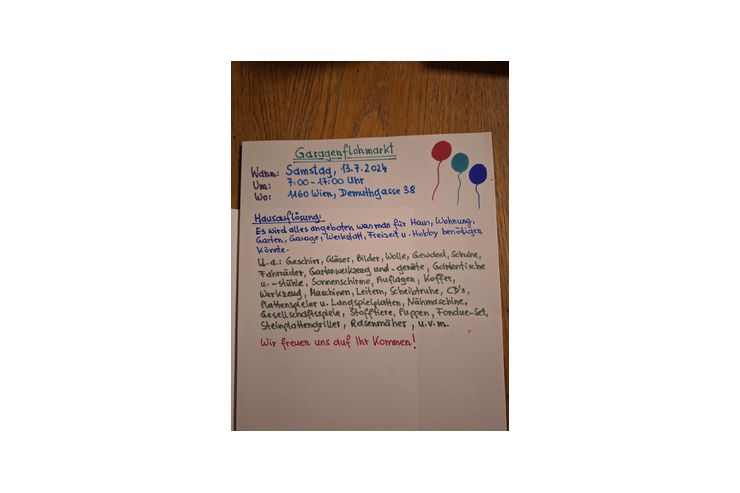 Garagenflohmarkt
Wann: Samstag, 13.7.2024
Um: 7:00-17:00 Uhr
Wo: 1160 Wien, Demuthgasse 38
Hausauflösung:
Es wird alles angeboten was man für Haus, Wohnung,
Garten, Garage, Werkstatt, Freizeit u. Hobby benötigen
könnte.
U.a.: Geschirr, Gläser, Bilder, Wolle, Gewand, Schuhe,
Fahrräder, Gartenwerkzeug und -geräte, Gartentische
u. -stühle, Sonnenschirme, Auflagen, Koffer,
Werkzeug, Maschinen, Leitern, Scheibtruhe, CD's,
Plattenspieler u. Langspielplatten, Nähmaschine,
Gesellschaftsspiele, Stofftiere, Puppen, Fondue-Set,
Steinplattengriller, Rasenmäher, u.v.m.
Wir freuen uns auf Ihr Kommen!